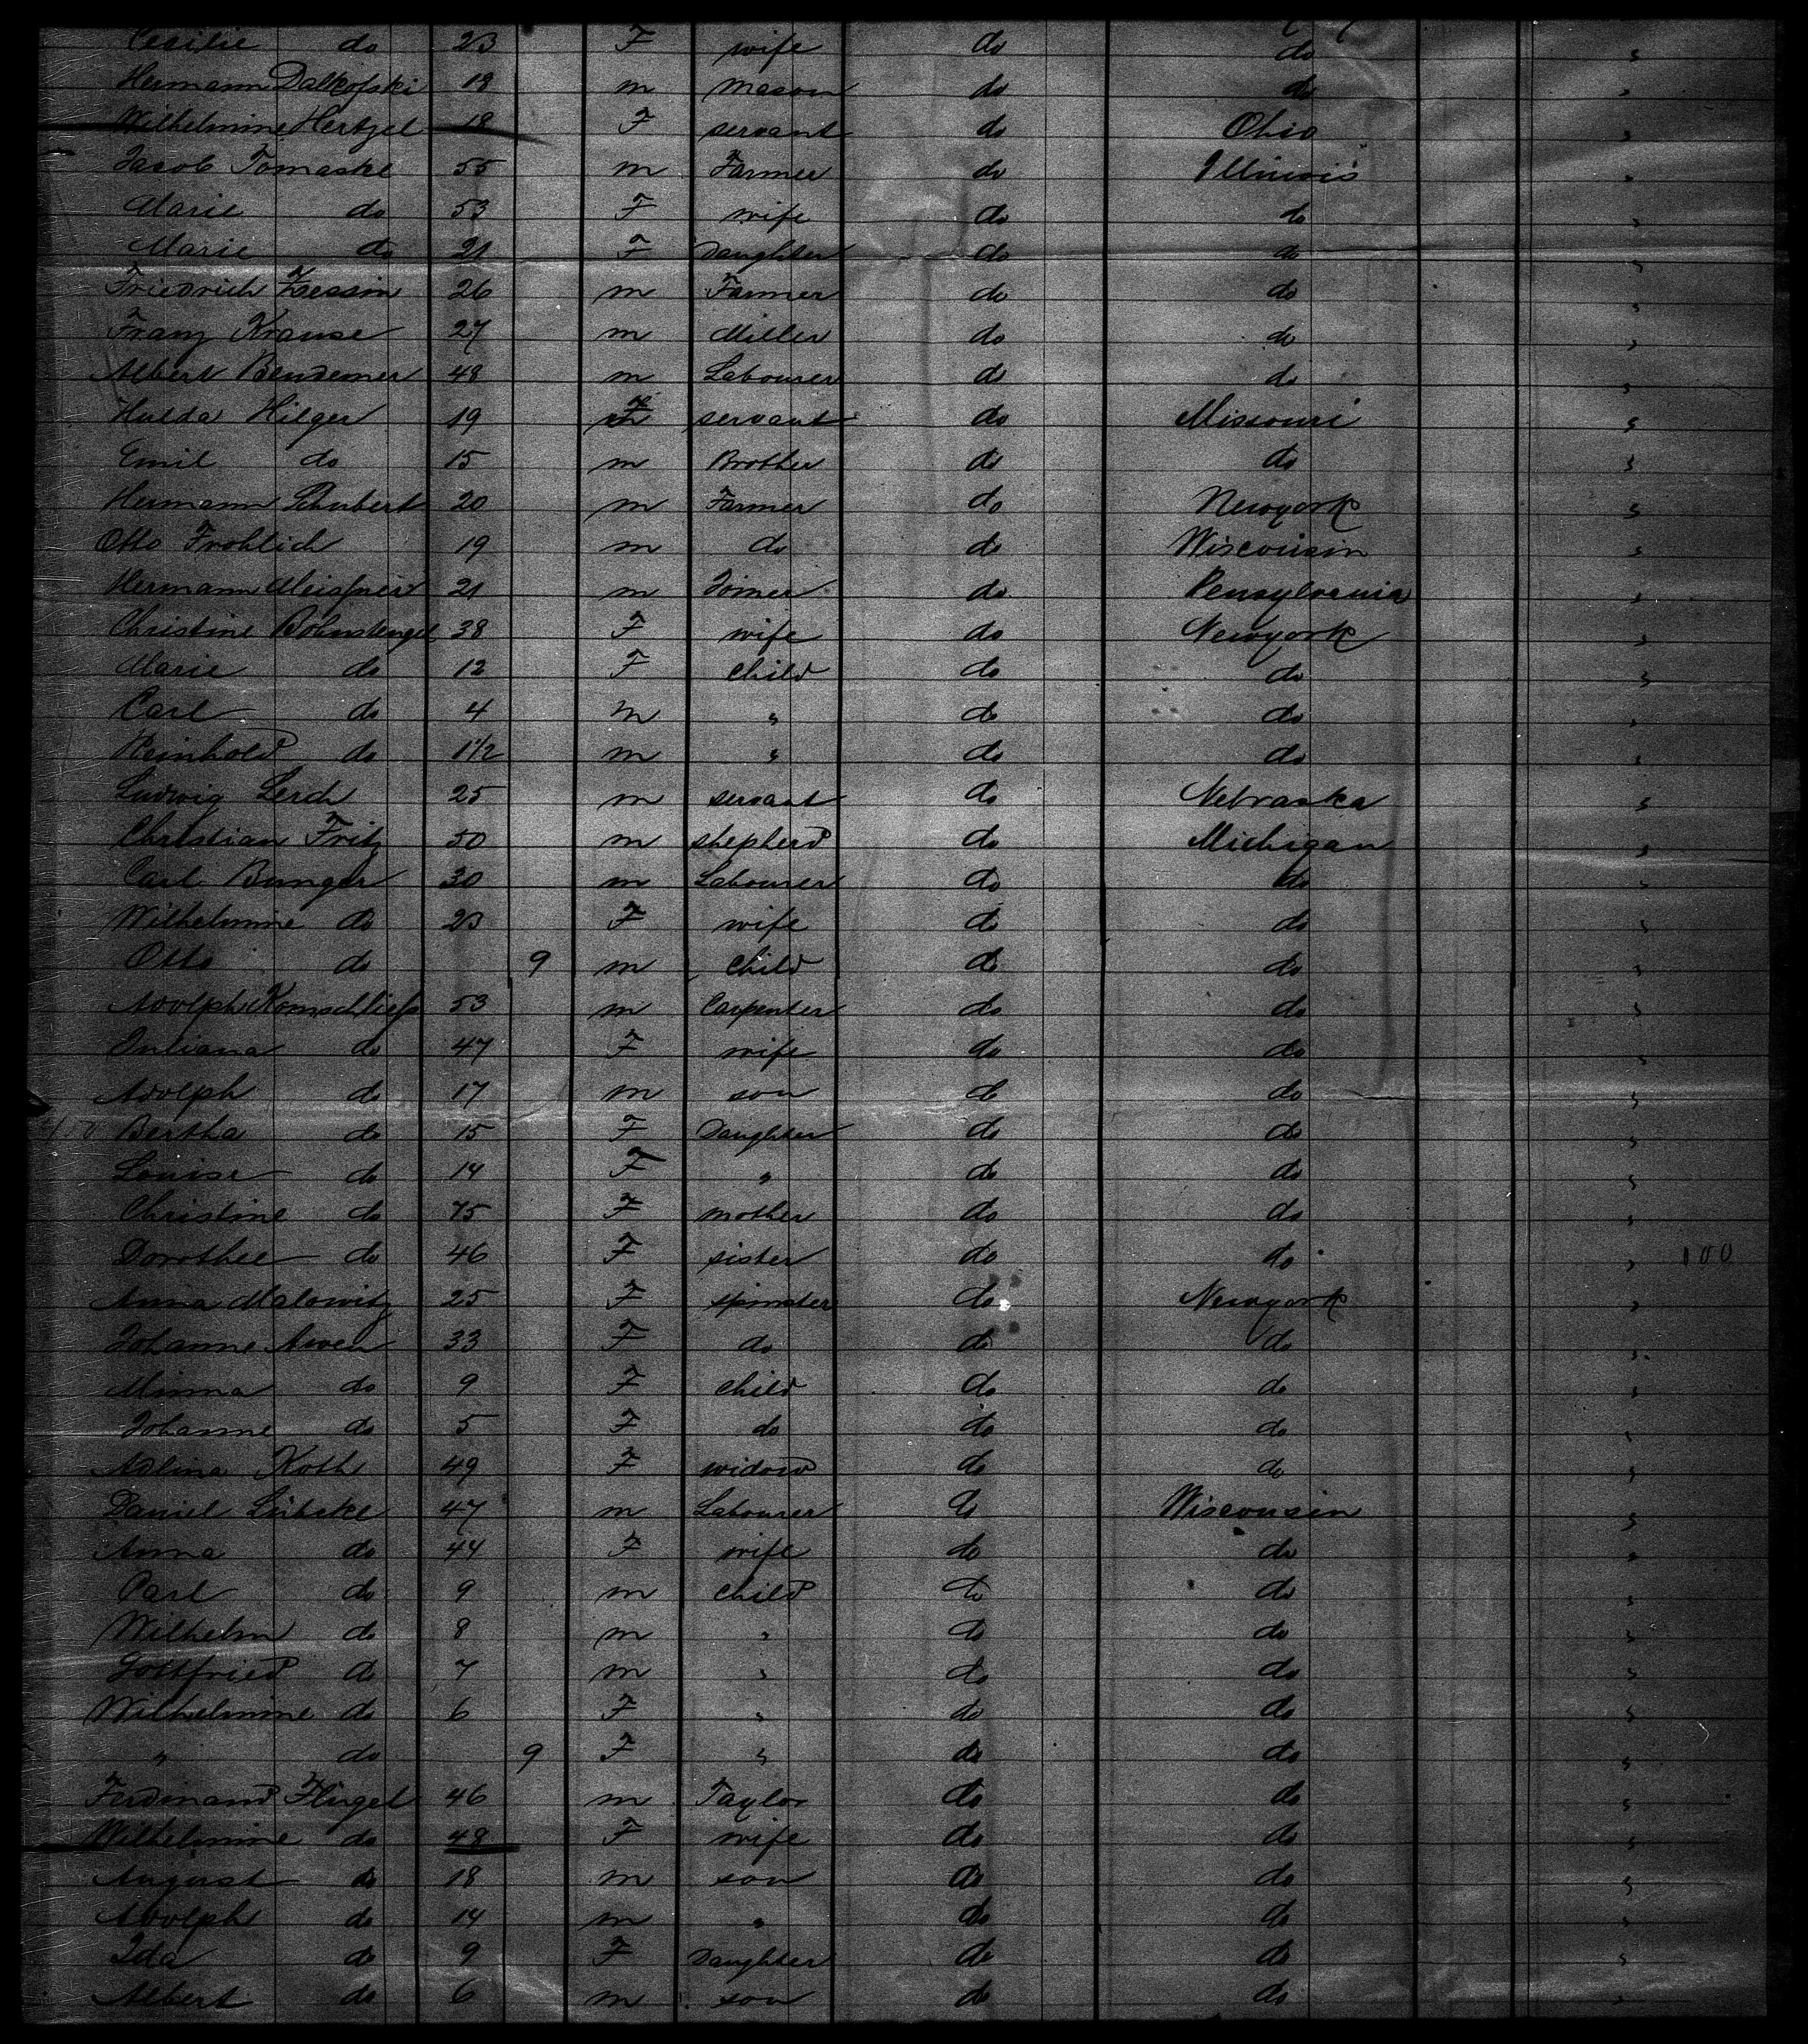 Cecilie do 23 F wife do do
Hermann Dalkofski 18 m mason do do
Wilhelmine Hertzel 18 F servant do Ohio "
Jacob Tomaske 55 m Farmer do Illinois "
Marie do 53 F wife do do "
Marie do 21 F Daughter do do "
Friedrich Zessin 26 m Farmer do do "
Franz Krause 27 m Miller do do "
Albert Bendemer 48 m Labourer do do "
Hulda Hilger 19 F servant do Missouri "
Emil do 15 m Brother do do "
Hermann Schubert 20 m Farmer do Newyork "
Otto Frohlich 19 m do do Wisconsin "
Hermann Meisfner 21 m Joiner do Pensylvania "
Christine Bohnstengel 38 F wife do Newyork "
Marie do 12 F child do do "
Carl do 4 m " do do "
Reinhold do 1 1/2 m " do do "
Ludwig Lerch 25 m servant do Nebraska "
Christian Fritz 50 m shepherd do Michigan "
Carl Bunger 30 m Labourer do do "
Wilhelmine do 23 F wife do do "
Otto do 9 m child do do "
Adolph Komschliefs 53 m Carpenter do do "
Juliana do 47 F wife do do "
Adolph do 17 m son do do "
Bertha do 15 F Daughter do do "
Louise do 14 F " do do "
Christine do 75 F mother do do "
Dorothee do 46 F sister do do " 100
Anna Malowitz 25 F spinster do Newyork "
Johanne Arven 33 F do do do "
Minna do 9 F child do do "
Johanne do 5 F do do do "
Adlina Koth 49 F widow do do "
Daniel Lübcke 47 m Labourer do Wisconsin "
Anna do 44 F wife do do "
Carl do 9 m child do do "
Wilhelm do 8 m " do do "
Gottfried do 7 m " do do "
Wilhelmine do 6 F " do do "
" do 9 F " do do "
Ferdinand Flügel 46 m Taylor do do "
Wilhelmine do 48 F wife do do "
August do 18 m son do do "
Adolph do 14 m " do do "
Ida do 9 F Daughter do do "
Albert do 6 m son do do "